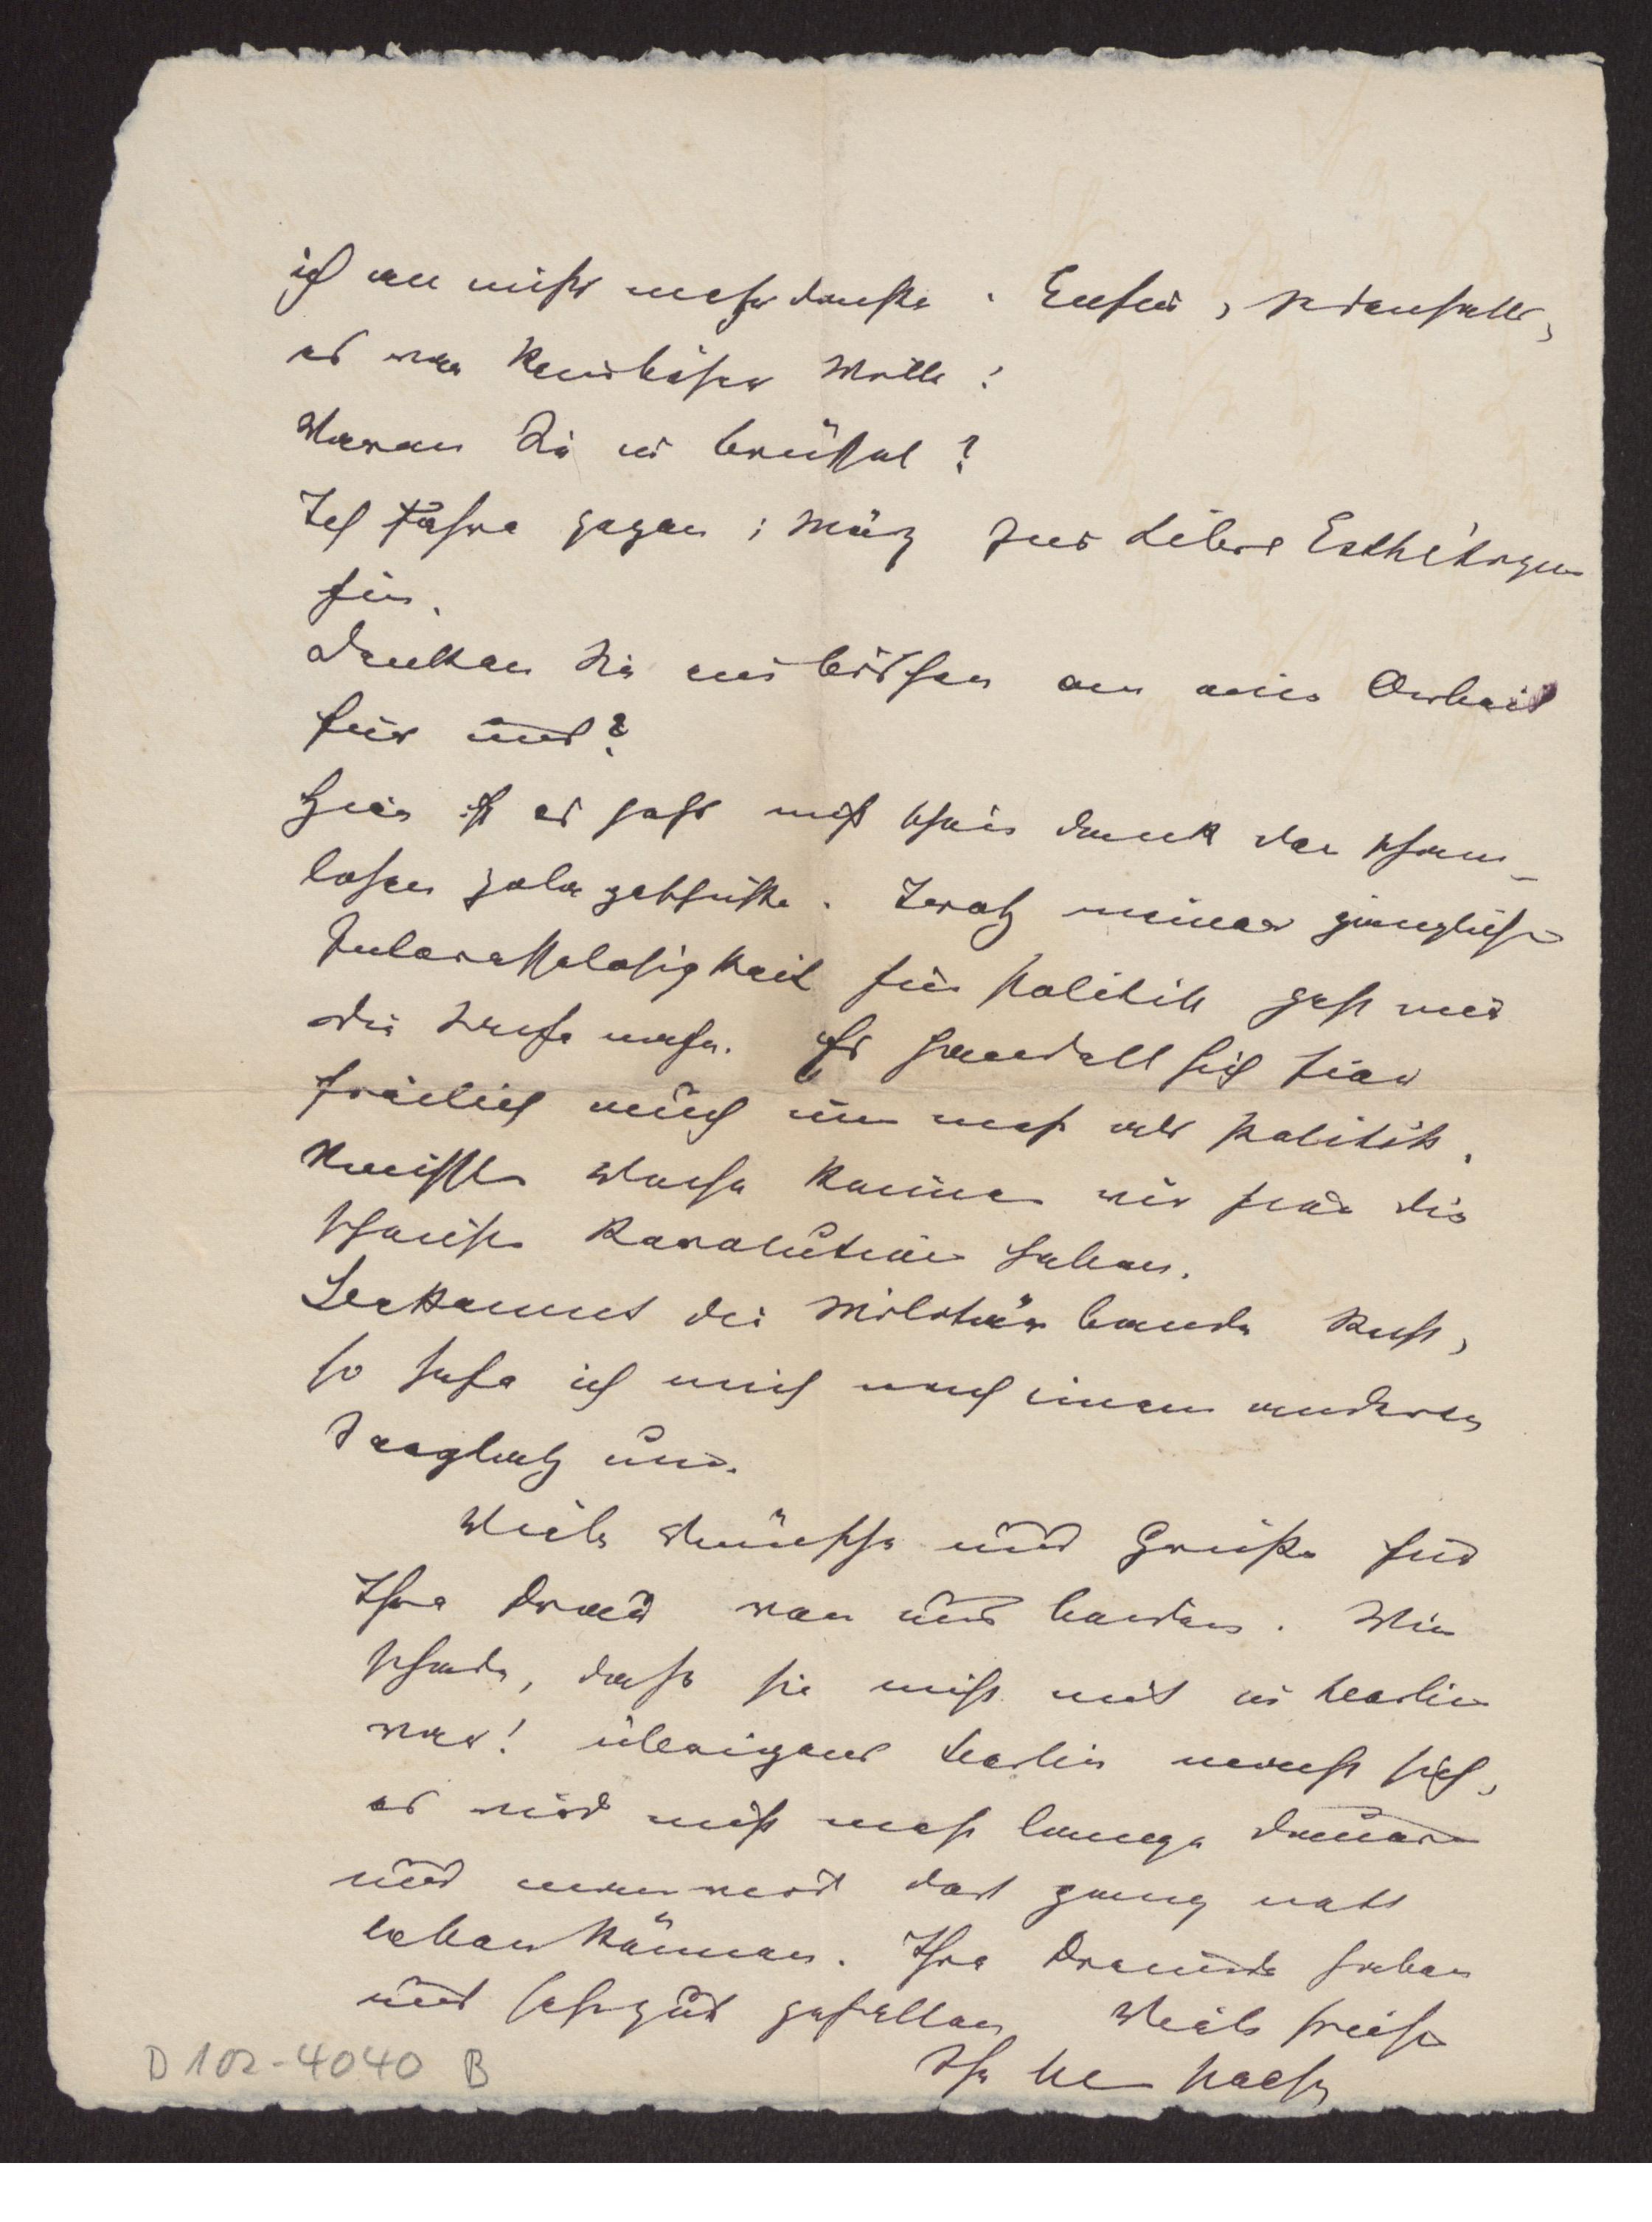 ich an nichts mehr dachte. Enfin, jedenfalls,
es war kein böser Wille!
Waren Sie in Brüssel?
Ich fahre gegen 1 März zur Libre Esthétique
hin.
Denken Sie ein bischen an eine Arbeit
für uns?
Hier ist es jetzt nicht schön dank der scham-
losen Zolageschichte. Trotz meiner gänzlichen
Interesselosigkeit für Politik geht mir
die Sache nahe. Es handelt sich hier
freilich auch um mehr als Politik.
Nächste Woche können wir hier die
schönste Revolution haben.
Bekommt die Militärbande Recht,
so sehe ich mich nach einem anderen
um.
Viele Wünsche und Grüße für
Ihre Frau von uns beiden. Wie
schade, dass sie nicht mit in Berlin
war! Übrigens Berlin macht sich,
es wird nicht mehr lange dauern
und man wird dort ganz nett
leben können. Ihre Freunde haben
uns sehr gut gefallen. Viele Grüße
Ihr
D 102-4040 B